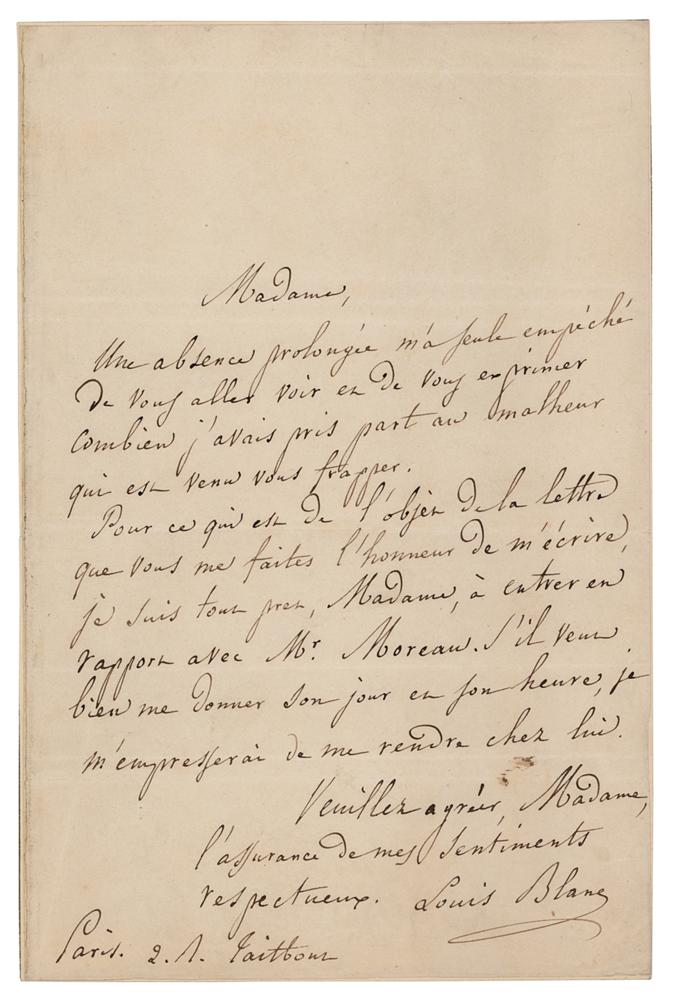 Madame,
Une absence prolongée m'a seule empêché
de vous aller voir et de vous exprimer
combien j'avais pris part au malheur
qui est venu vous frapper.
Pour ce qui est de l'objet de la lettre
que vous me faites l'honneur de m'écrire,
je suis tout pret, Madame, à entrer en
rapport avec Mr. Moreau. S'il veut
bien me donner son jour et son heure, je
m'empresserai de me rendre chez lui.
Veuillez agréer, Madame,
l'assurance de mes sentiments
respectueux. Louis Blanc
Paris. 2. r. Taitbout